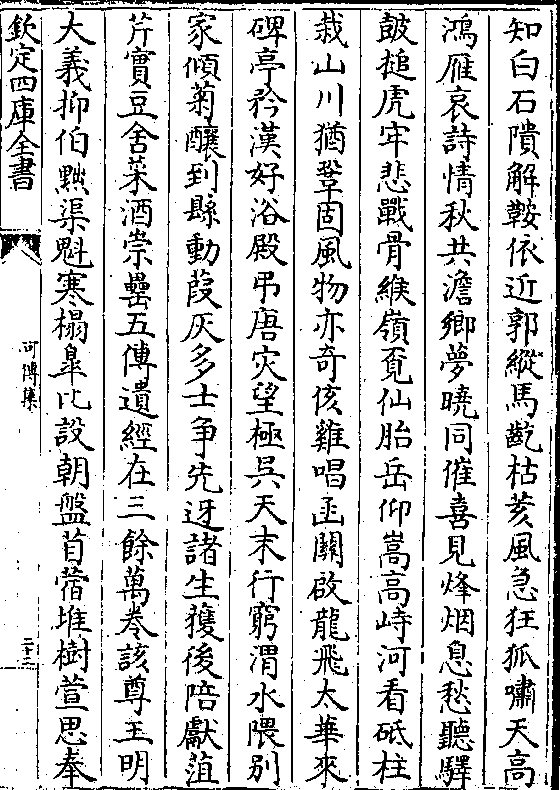 知白石隤解鞍依近郭縱馬齕枯荄風急狂狐嘯天高
鴻雁哀詩情秋共澹鄉夢曉同催喜見烽烟息愁聽驛
鼓搥虎牢悲戰骨緱嶺覓仙胎岳仰嵩高峙河看砥柱
栽山川猶鞏固風物亦奇侅雞唱函關啟龍飛太華來
碑亭矜漢好浴殿弔唐灾望極吳天末行窮渭水隈别
家傾菊釀到縣動葭灰多士争先迓諸生獲後陪獻菹
芹實豆舍菜酒崇罍五傳遺經在三餘萬巻該尊王明
大義抑伯黜渠魁寒榻臯比設朝盤苜蓿堆樹萱思奉
欽定四庫全書
可傳集
二十三